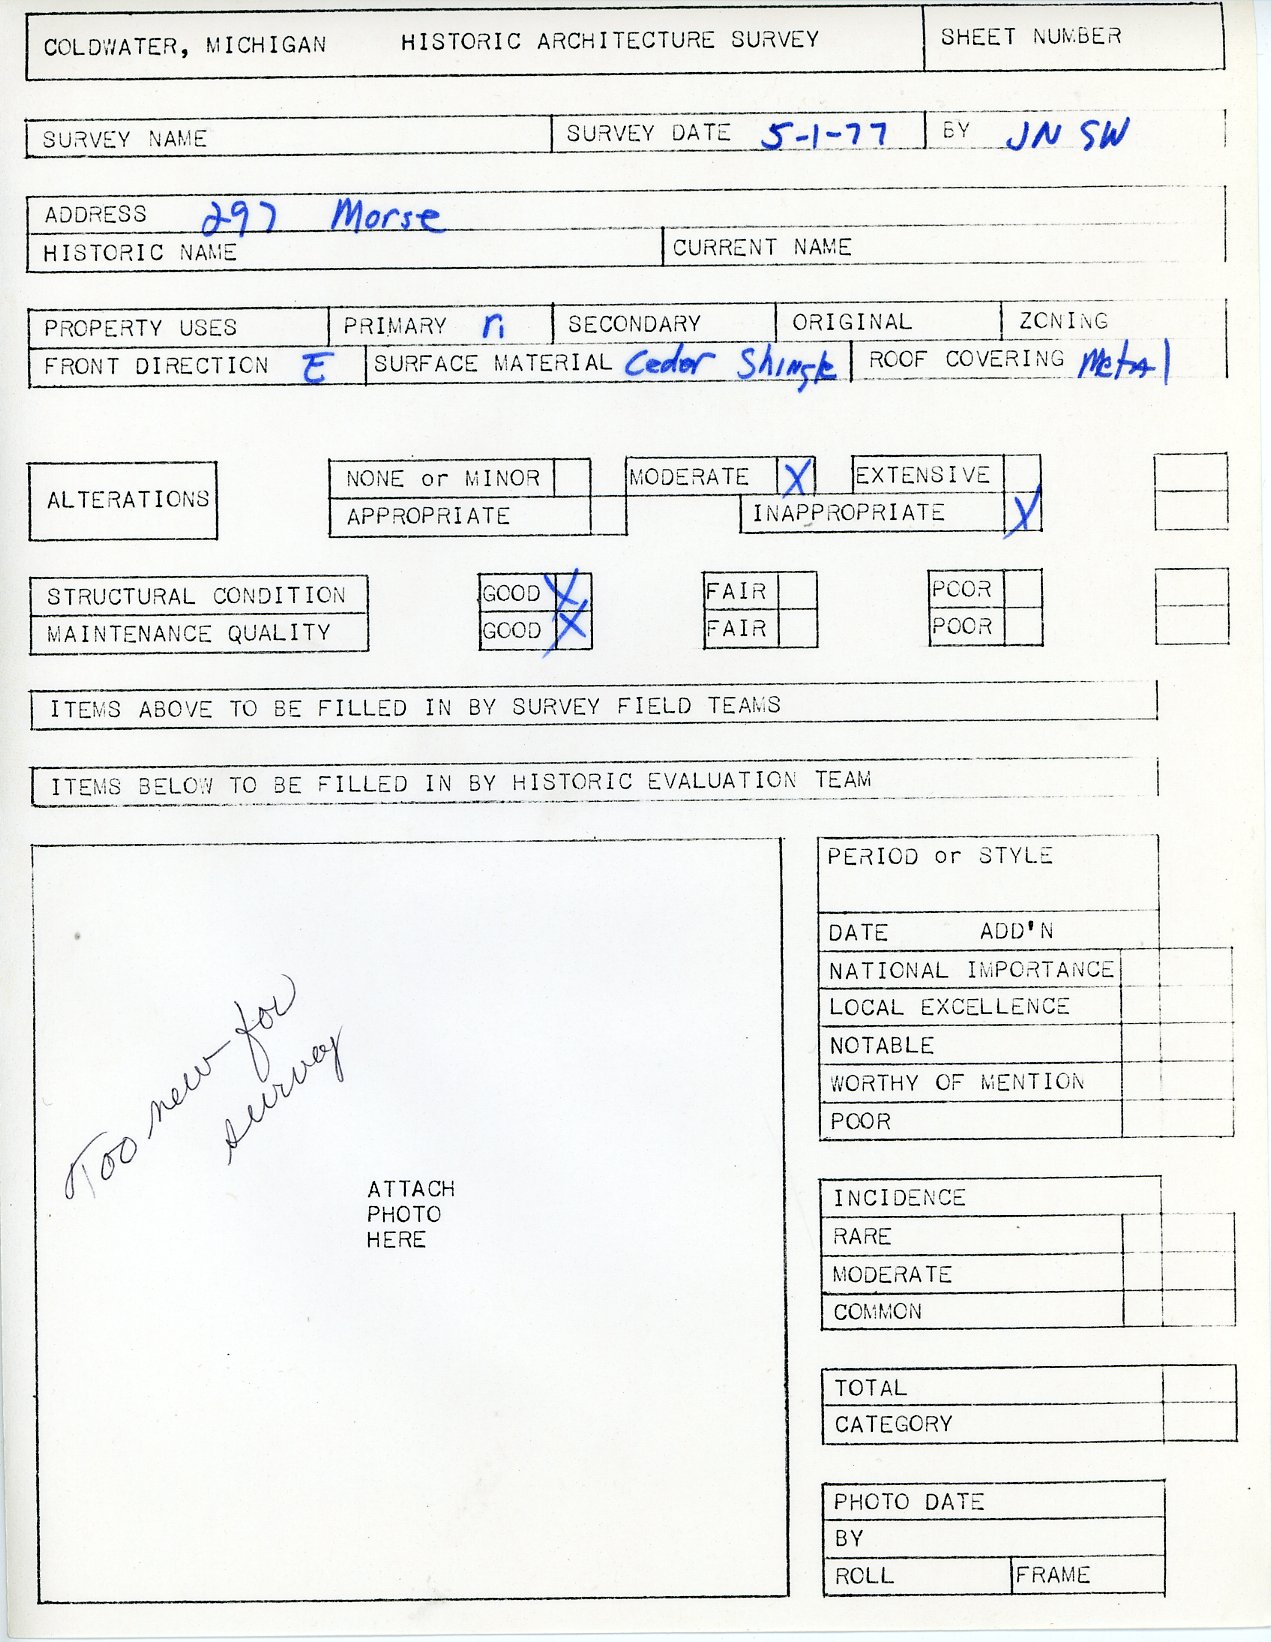 COLDWATER, MICHIGAN HISTORIC ARCHITECTURE SURVEY SHEET NUMBER
SURVEY NAME SURVEY DATE 5-1-77 BY JN SW
ADDRESS 297 Morse
HISTORIC NAME CURRENT NAME
PROPERTY USES PRIMARY SECONDARY ORIGINAL ZONING
FRONT DIRECTION E SURFACE MATERIAL Cedar Shingle ROOF COVERING Metal
ALTERATIONS NONE or MINOR MODERATE X EXTENSIVE
APPROPRIATE INAPPROPRIATE X
STRUCTURAL CONDITION GOOD X FAIR POOR
MAINTENANCE QUALITY GOOD X FAIR POOR
ITEMS ABOVE TO BE FILLED IN BY SURVEY FIELD TEAMS
ITEMS BELOW TO BE FILLED IN BY HISTORIC EVALUATION TEAM
Too new for
survey
ATTACH
PHOTO
HERE
PERIOD or STYLE
DATE ADD'N
NATIONAL IMPORTANCE
LOCAL EXCELLENCE
NOTABLE
WORTHY OF MENTION
POOR
INCIDENCE
RARE
MODERATE
COMMON
TOTAL
CATEGORY
PHOTO DATE
BY
ROLL FRAME